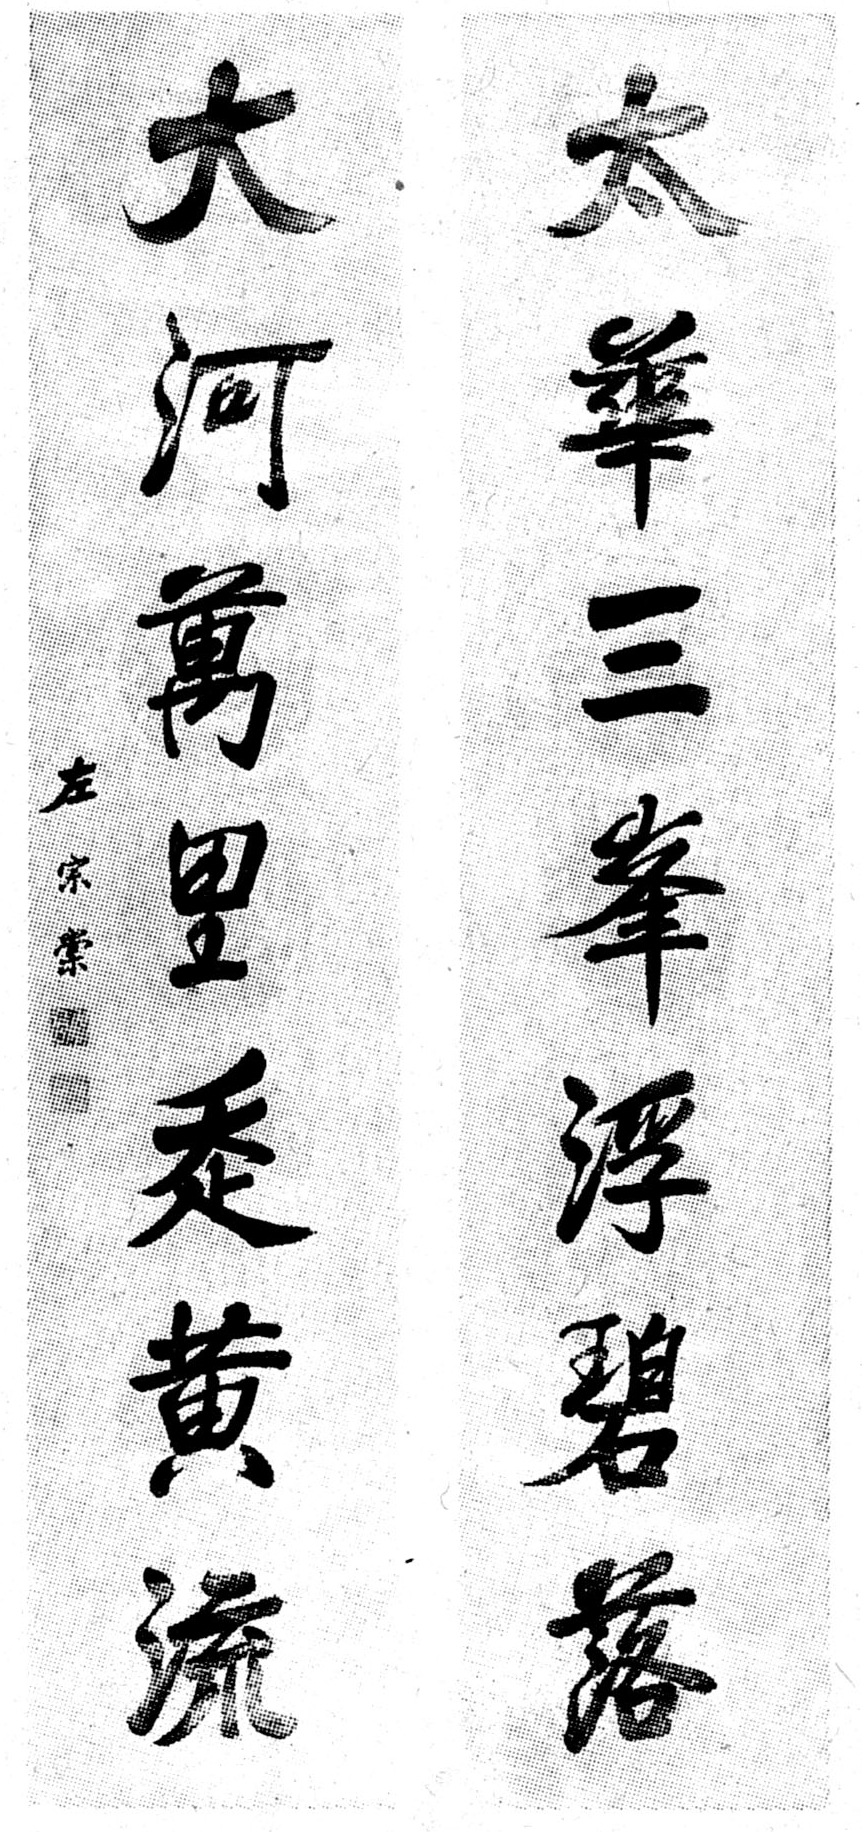 太華三峯浮碧落
大河萬里走黃流
左宗棠